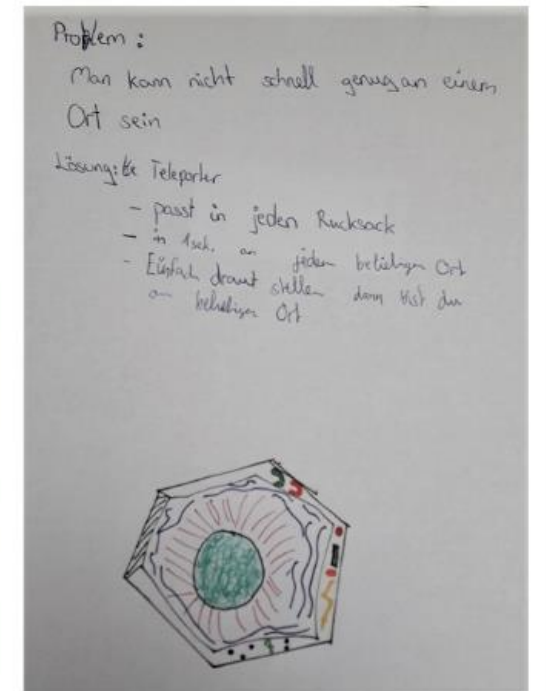 Problem:
Man kann nicht schnell genug an einem
Ort sein
Lösung: Teleporter
- passt in jeden Rucksack
- in 1sek. an jeden beliebigen Ort
- Einfach drauf stellen dann bist du
an beliebigen Ort